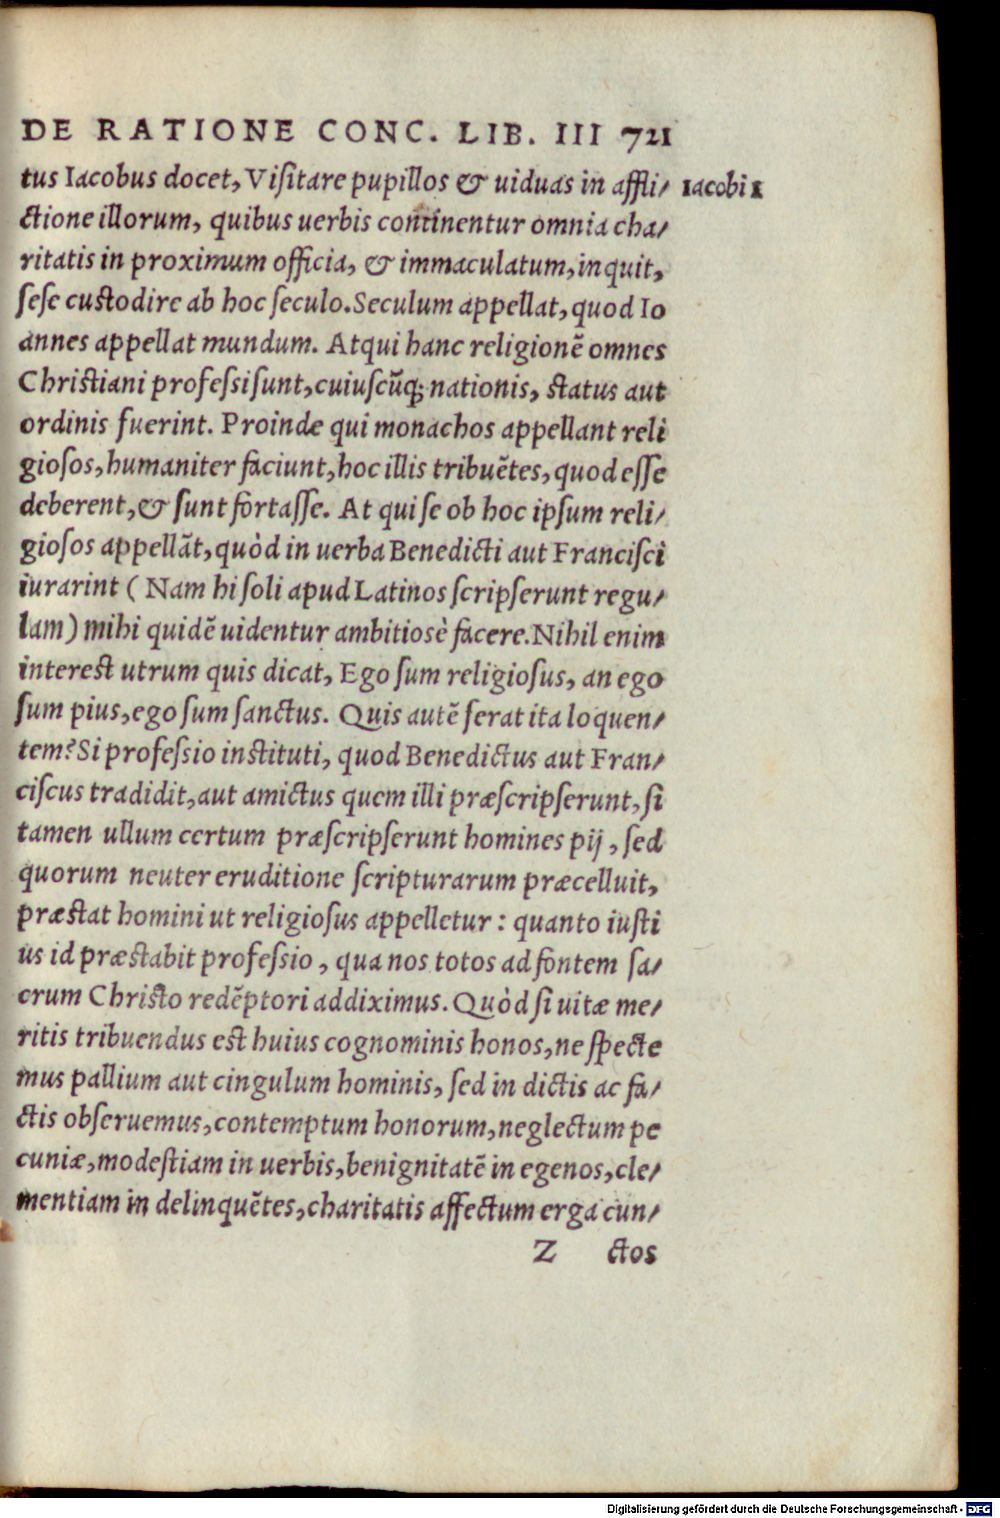 DE RATIONE CONC. LIB. III 721
tus Iacobus docet, Visitare pupillos & uiduas in affli/ Iacobi 1
ctione illorum, quibus uerbis continentur omnia cha/
ritatis in proximum officia, & immaculatum, inquit,
sese custodire ab hoc seculo. Seculum appellat, quod Io
annes appellat mundum. Atqui hanc religionē omnes
Christiani professi sunt, cuiuscūq; nationis, status aut
ordinis fuerint. Proinde qui monachos appellant reli
giosos, humaniter faciunt, hoc illis tribuētes, quod esse
deberent, & sunt fortasse. At qui se ob hoc ipsum reli/
giosos appellāt, quòd in uerba Benedicti aut Francisci
iurarint ( Nam hi soli apud Latinos scripserunt regu/
lam) mihi quidē uidentur ambitiosè facere. Nihil enim
interest utrum quis dicat, Ego sum religiosus, an ego
sum pius, ego sum sanctus. Quis autē ferat ita loquen/
tem? Si professio instituti, quod Benedictus aut Fran/
ciscus tradidit, aut amictus quem illi præscripserunt, si
tamen ullum certum præscripserunt homines pij, sed
quorum neuter eruditione scripturarum præcelluit,
præstat homini ut religiosus appelletur : quanto iusti
us id præstabit professio, qua nos totos ad fontem sa/
crum Christo redēptori addiximus. Quòd si uitæ me/
ritis tribuendus est huius cognominis honos, ne specte
mus pallium aut cingulum hominis, sed in dictis ac fa/
ctis obseruemus, contemptum honorum, neglectum pe
cuniæ, modestiam in uerbis, benignitatē in egenos, cle/
mentiam in delinquētes, charitatis affectum erga cun/
Z ctos
Digitalisierung gefördert durch die Deutsche Forschungsgemeinschaft - DFG